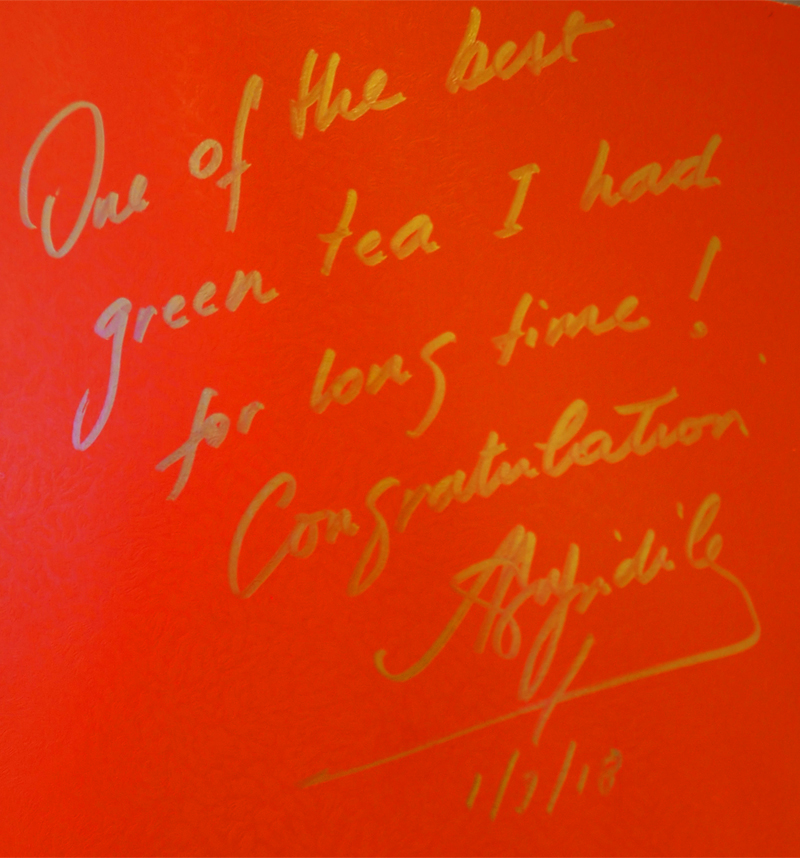 One of the best
green tea I had
for long time !
Congratulation
1/7/18